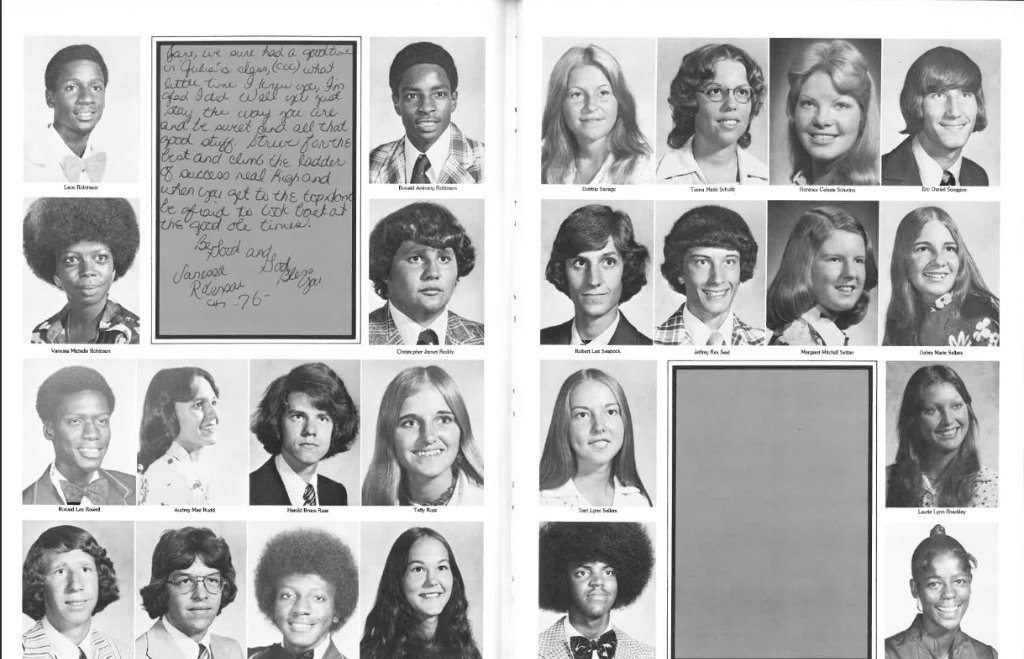 Jane, we sure had a good time
in Julia's class, (COE) what
little time I knew you, I'm
glad I did. Well you just
stay the way you are
and be sweet and all that
good stuff. Strive for the
best and climb the ladder
of success real high and
when you get to the top don't
be afraid to look back at
the good ole times.
Be Good and
God
Bless
You
Vanessa
Robinson
-76-
Leon Robinson
Ronald Anthony Robinson
Vanessa Michelle Robinson
Christopher James Roddy
Ronald Lee Rowell
Audrey Mae Rudd
Harold Bruce Russ
Tatty Russ
Debbie Savage
Teena Marie Schultz
Florence Celeste
Eric Daniel Scoggins
Robert Lee Seabock
Jeffrey Rex Seal
Margaret Mitchell Seitter
Debra Marie Sellers
Terri Lynn Sellers
Laurie Lynn Shackley